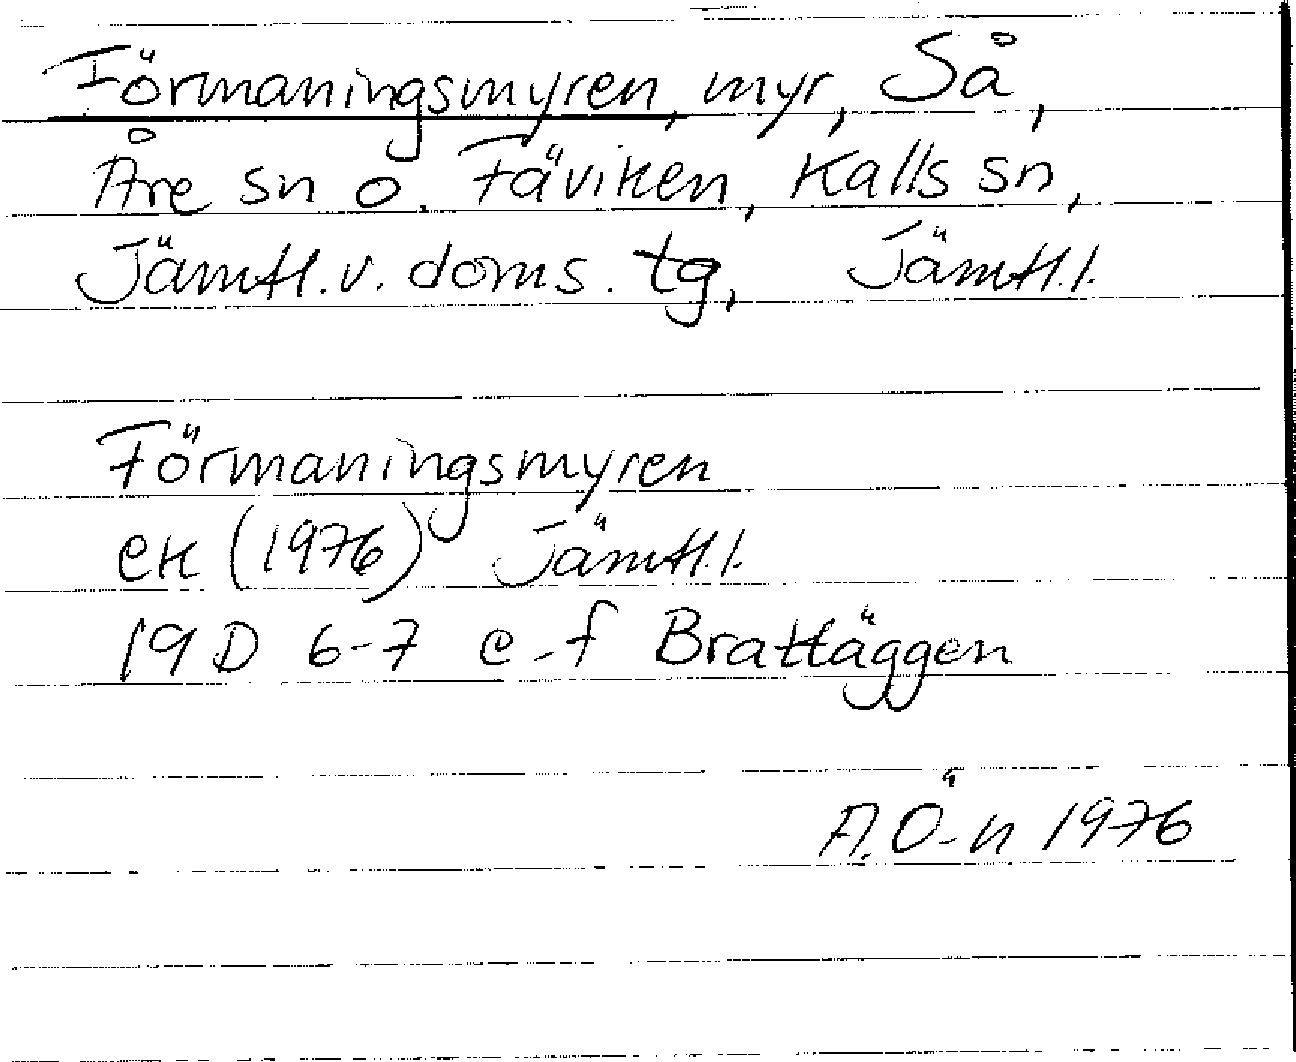 Förmaningsmyren, myr, Så,
Åre sn o. Fäviken, Kalls sn,
Jämtl. v. doms. tg, Jämtl. l.
Förmaningsmyren
ek (1976) Jämtl. l.
19 D 6-7 e-f Brattäggen
A. Ö-n 1976